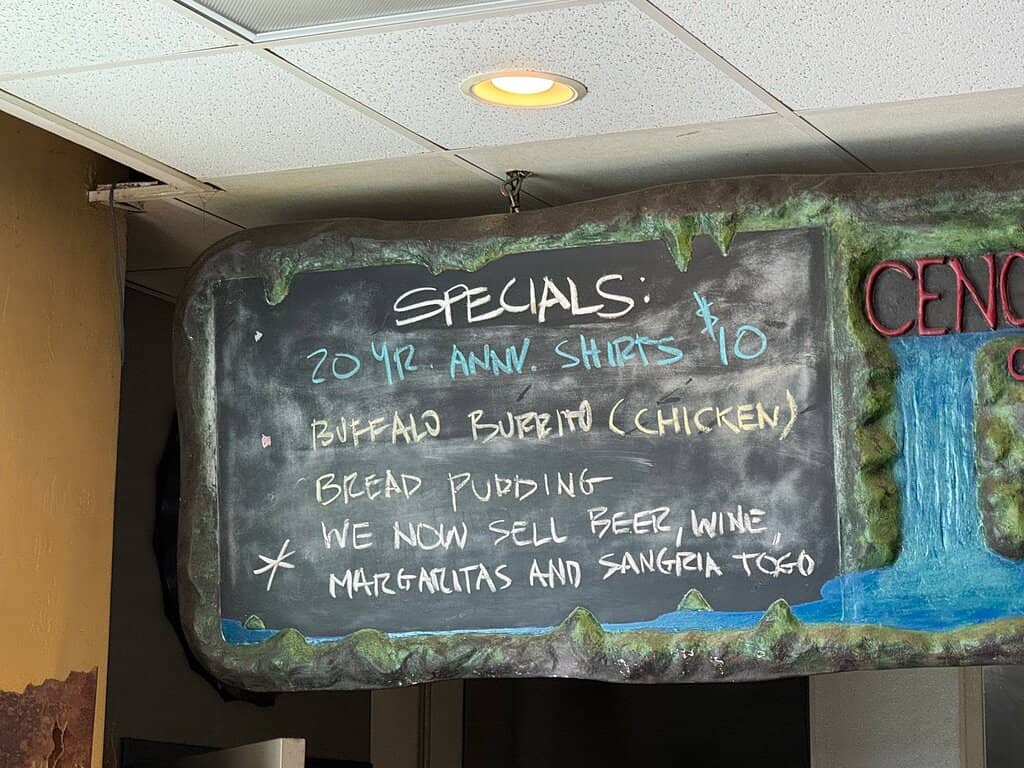 SPECIALS:
20 YR. ANNV. SHIRTS $10
BUFFALO BURRITO (CHICKEN)
BREAD PUDDING
WE NOW SELL BEER, WINE,
* MARGARITAS AND SANGRIA TOGO
CENO